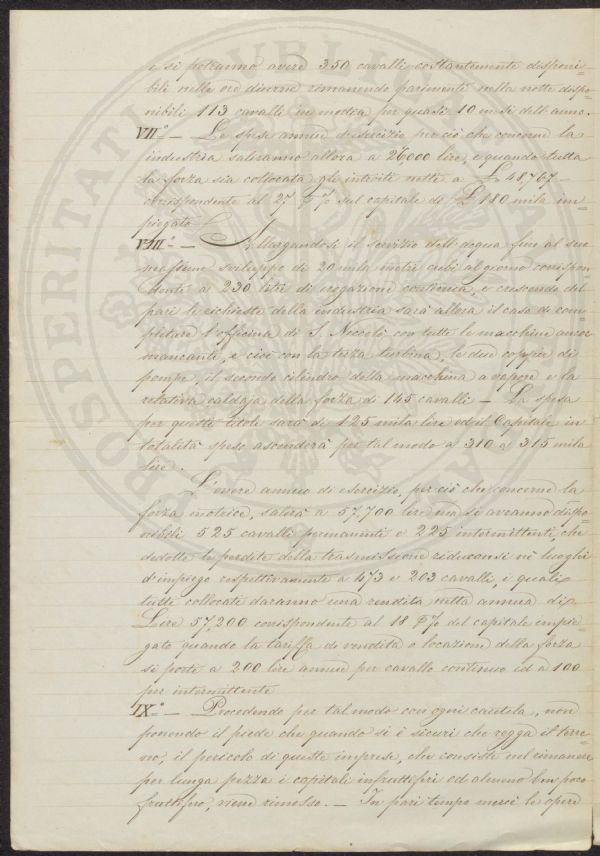 e si potranno avere 350 cavalli costantemente disponi-
bili nelle ore diurne rimanendo parimenti nella notte dispo-
nibili 113 cavalli in media per quasi 10 mesi dell'anno.
VII.° — Le spese annue d'esercizio per ciò che concerne la
industria saliranno allora a 26000 lire, e quando tutta
la forza sia collocata gli introiti netti a £ 48,767 —
corrispondente al 27 P% sul capitale di £ 180 mila im-
piegato —
VIII.° — Allargandosi il servizio dell'acqua fino al suo
massimo sviluppo di 20 mila metri cubi al giorno corrispon-
denti a 230 litri di erogazione continua, e crescendo del
pari le richieste della industria sarà allora il caso di com-
pletare l'officina di S. Niccolò con tutte le macchine ancor
mancanti, e cioè con la terza turbina, le due coppie di
pompe, il secondo cilindro della macchina a vapore e la
relativa caldaja della forza di 145 cavalli — La spesa
per questo titolo sarà di 125 mila lire ed il Capitale in
totalità speso ascenderà per tal modo a 310 o 315 mila
lire.
L'onere annuo di esercizio, per ciò che concerne la
forza motrice, salirà a 57,700 lire ma si avranno dispo-
nibili 525 cavalli permanenti e 225 intermittenti, che
dedotte le perdite della trasmissione riduconsi nè luoghi
d'impiego respettivamente a 473 e 203 cavalli, i quali
tutti collocati daranno una rendita netta annua di
Lire 57,200 corrispondente al 18 P% del capitale impie-
gato quando la tariffa di vendita o locazione della forza
si porti a 200 lire annue per cavallo continuo ed a 100
per intermittente
IX.° — Procedendo per tal modo con ogni cautela, non
ponendo il piede che quando si è sicuri che regga il terre-
no, il pericolo di queste imprese, che consiste nel rimanere
per lunga pezza i capitali infruttiferi od almeno ben poco
fruttiferi, viene rimosso. — In pari tempo mercè le opere